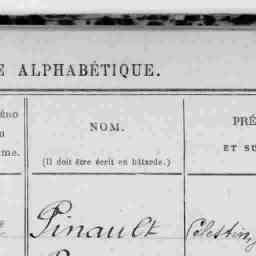 E ALPHABÉTIQUE.
NOM.
(Il doit être écrit en bâtarde.)
PRÉ
ET SU
Pinault
Célestin,